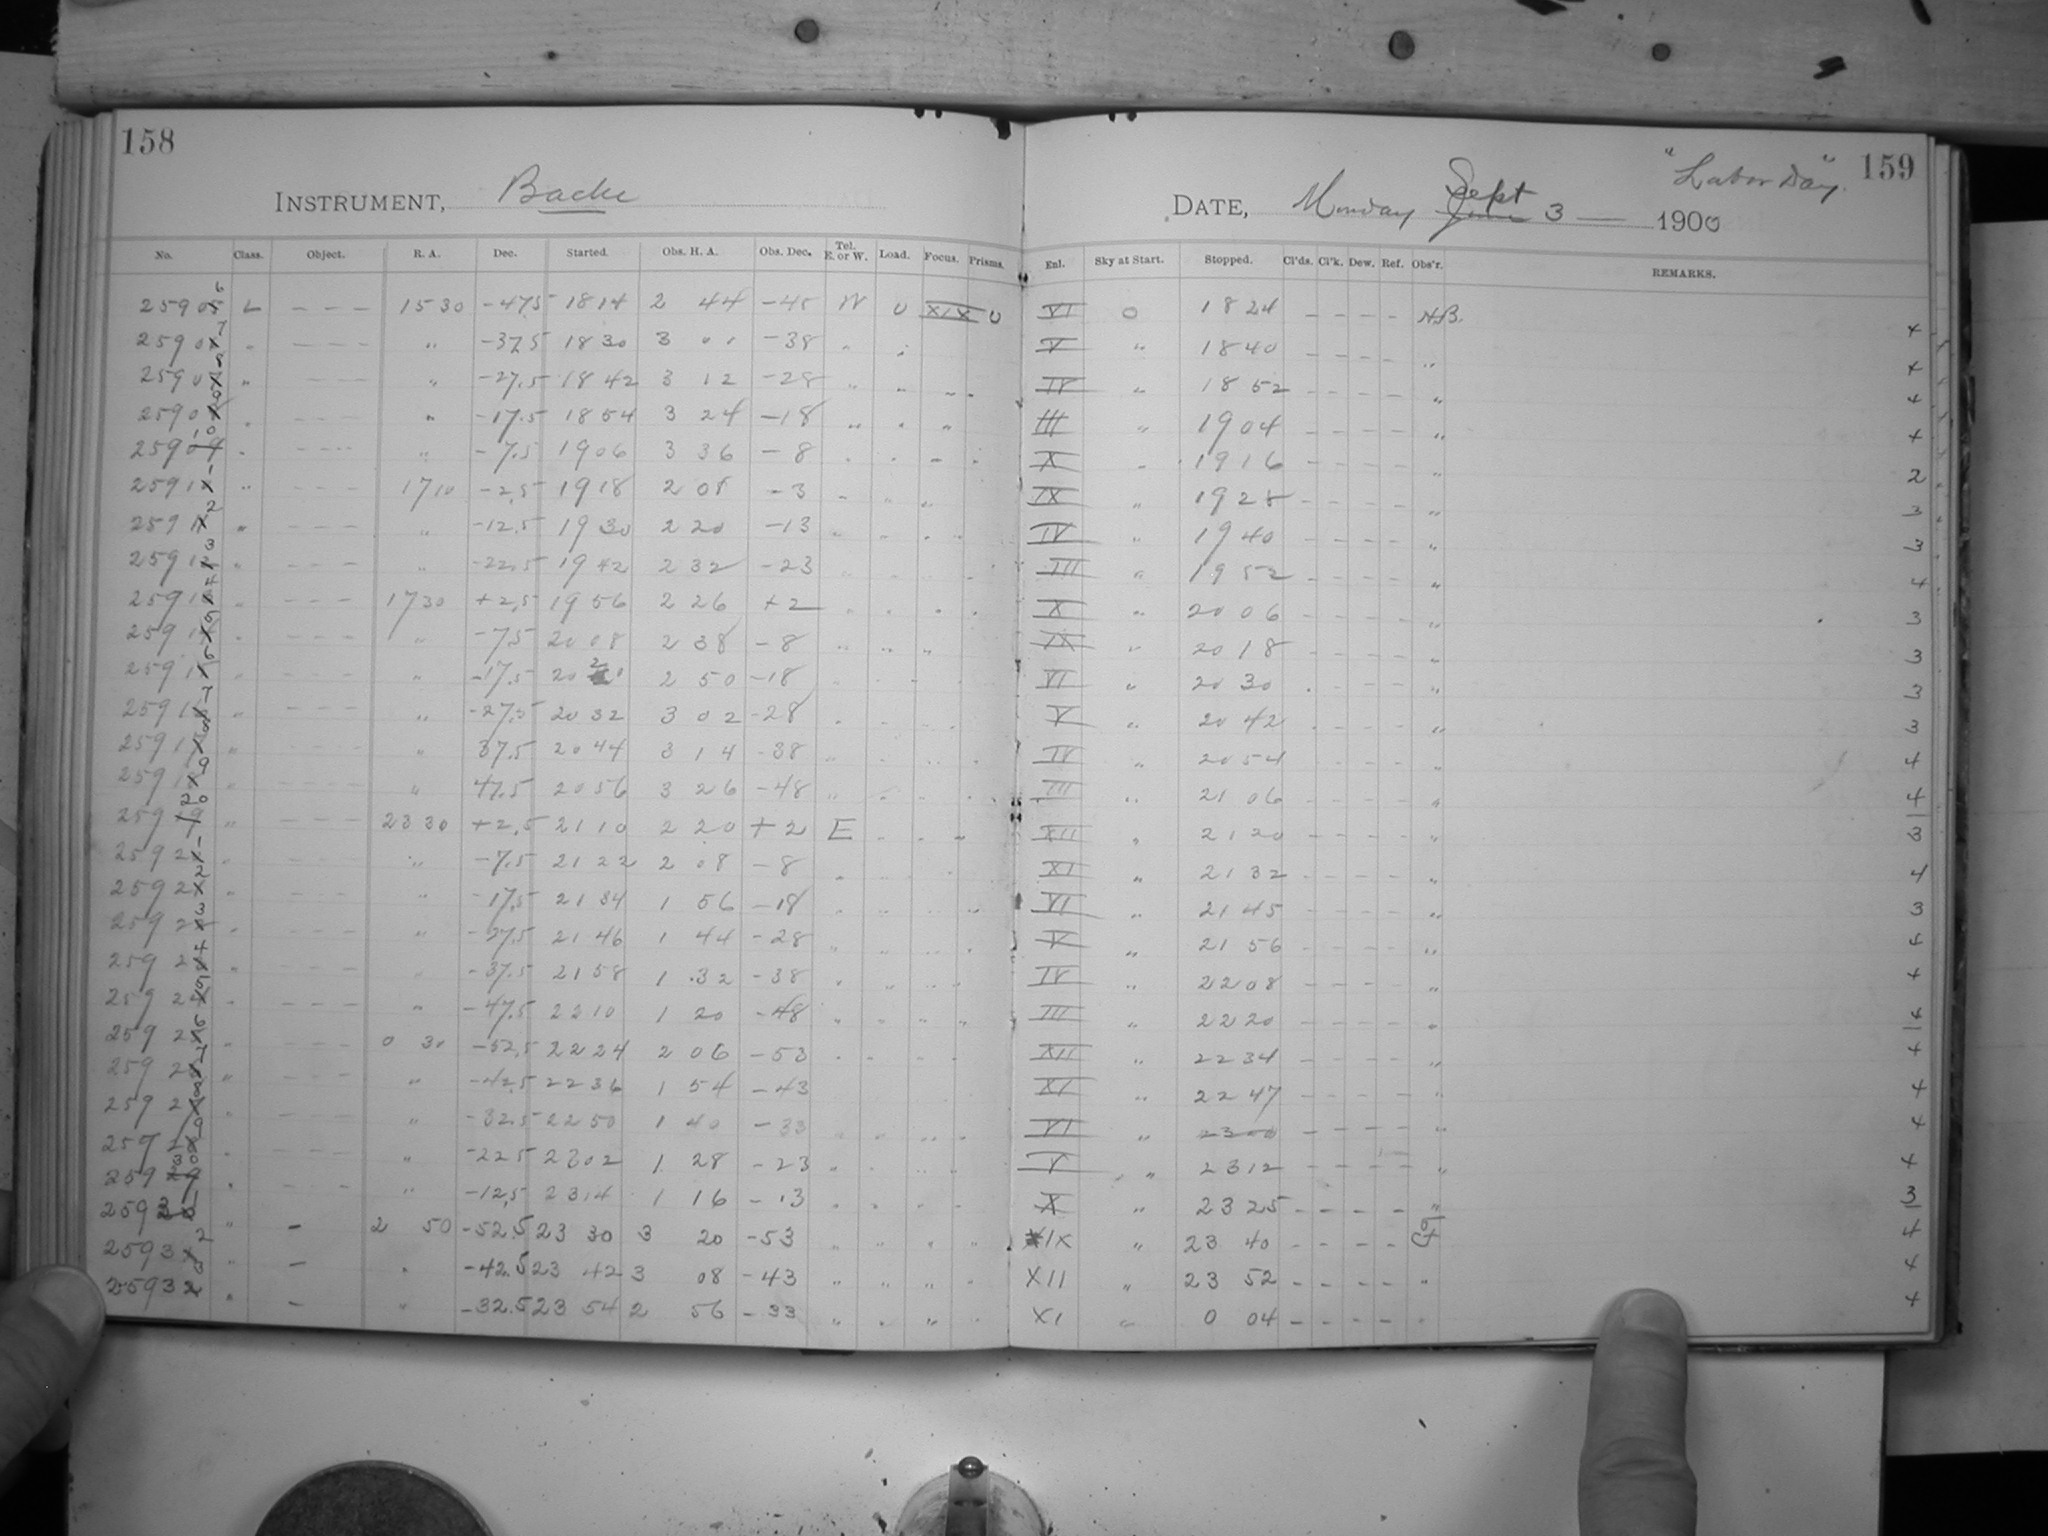 158
INSTRUMENT, Bache
No. Class. Object. R. A. Dec. Started. Obs. H. A. Obs. Dec. Tel. E. or W. Load. Focus. Prisms.
25906 L - - - 15 30 -47.5 18 14 2 44 -48 W 0 XIX 0
25907 " - - - " -37.5 18 30 3 00 -38 " "
25908 " - - - " -27.5 18 42 3 12 -28 " " " "
25909 " - - - " -17.5 18 54 3 24 -18 " " "
25910 " - - - " -7.5 19 06 3 36 -8 " " " "
25911 " - - - 17 10 -2.5 19 18 2 08 -3 " " "
25912 " - - - " -12.5 19 30 2 20 -13 " " " "
25913 " - - - " -22.5 19 42 2 32 -23 " " " "
25914 " - - - 17 30 +2.5 19 56 2 26 +2 " " " "
25915 " - - - " -7.5 20 08 2 38 -8 " " "
25916 " - - - " -17.5 20 20 2 50 -18 " " "
25917 " - - - " -27.5 20 32 3 02 -28 " " " "
25918 " - - - " 37.5 20 44 3 14 -38 " " "
25919 " - - - " 47.5 20 56 3 26 -48 " " " "
25920 " - - - 23 30 +2.5 21 10 2 20 +2 E " " "
25921 " - - - " -7.5 21 22 2 08 -8 " " " "
25922 " - - - " -17.5 21 34 1 56 -18 " " " "
25923 " - - - " -27.5 21 46 1 44 -28 " " " "
25924 " - - - " -37.5 21 58 1 32 -38 " " " "
25925 " - - - " -47.5 22 10 1 20 -48 " " " "
25926 " - - - 0 30 -52.5 22 24 2 06 -53 " " " "
25927 " - - - " -42.5 22 36 1 54 -43
25928 " - - - " -32.5 22 50 1 40 -33 " " " "
25929 " - - - " -22.5 23 02 1 28 -23 " " " "
25930 " - - - " -12.5 23 14 1 16 -13 " " " "
25931 " - 2 50 -52.5 23 30 3 20 -53 " " " "
25932 " - " -42.5 23 42 3 08 -43 " " " "
25933 " - " -32.5 23 54 2 56 -33 " " " "
"Labor Day" 159
DATE, Monday Sept June 3 1900
Enl. Sky at Start. Stopped. Cl'ds. Cl'k. Dew. Ref. Obs'r. REMARKS.
VI 0 18 24 - - - - 4
V " 18 40 - - - - " 4
IV " 18 52 - - - - " 4
III " 19 04 - - - - " 4
X " 19 16 - - - - " 2
IX " 19 28 - - - - " 3
IV " 19 40 - - - - " 3
III " 19 52 - - - - " 4
X " 20 06 - - - - " 3
IX " 20 18 - - - - " 3
VI " 20 30 - - - - " 3
V " 20 42 - - - - " 3
IV " 20 54 - - - - " 4
III " 21 06 - - - - " 4
XII " 21 20 - - - - " 3
XI " 21 32 - - - - " 4
VI " 21 45 - - - - " 3
V " 21 56 - - - - " 4
IV " 22 08 - - - - " 4
III " 22 20 - - - - " 4
XII " 22 34 - - - - " 4
XI " 22 47 - - - - " 4
VI " 23 00 - - - - " 4
V " 23 12 - - - - " 4
X " 23 25 - - - - " 3
IX " 23 40 - - - - 4
XII " 23 52 - - - - " 4
XI " 0 04 - - - - " 4